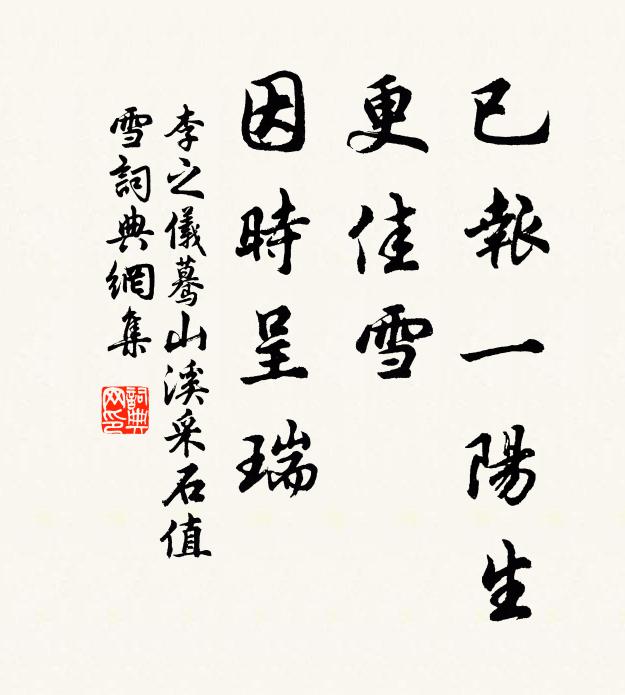 已報一陽生
更佳雪
因時呈瑞
李之儀驀山溪采石值
雪詞典網集
詞典
网印